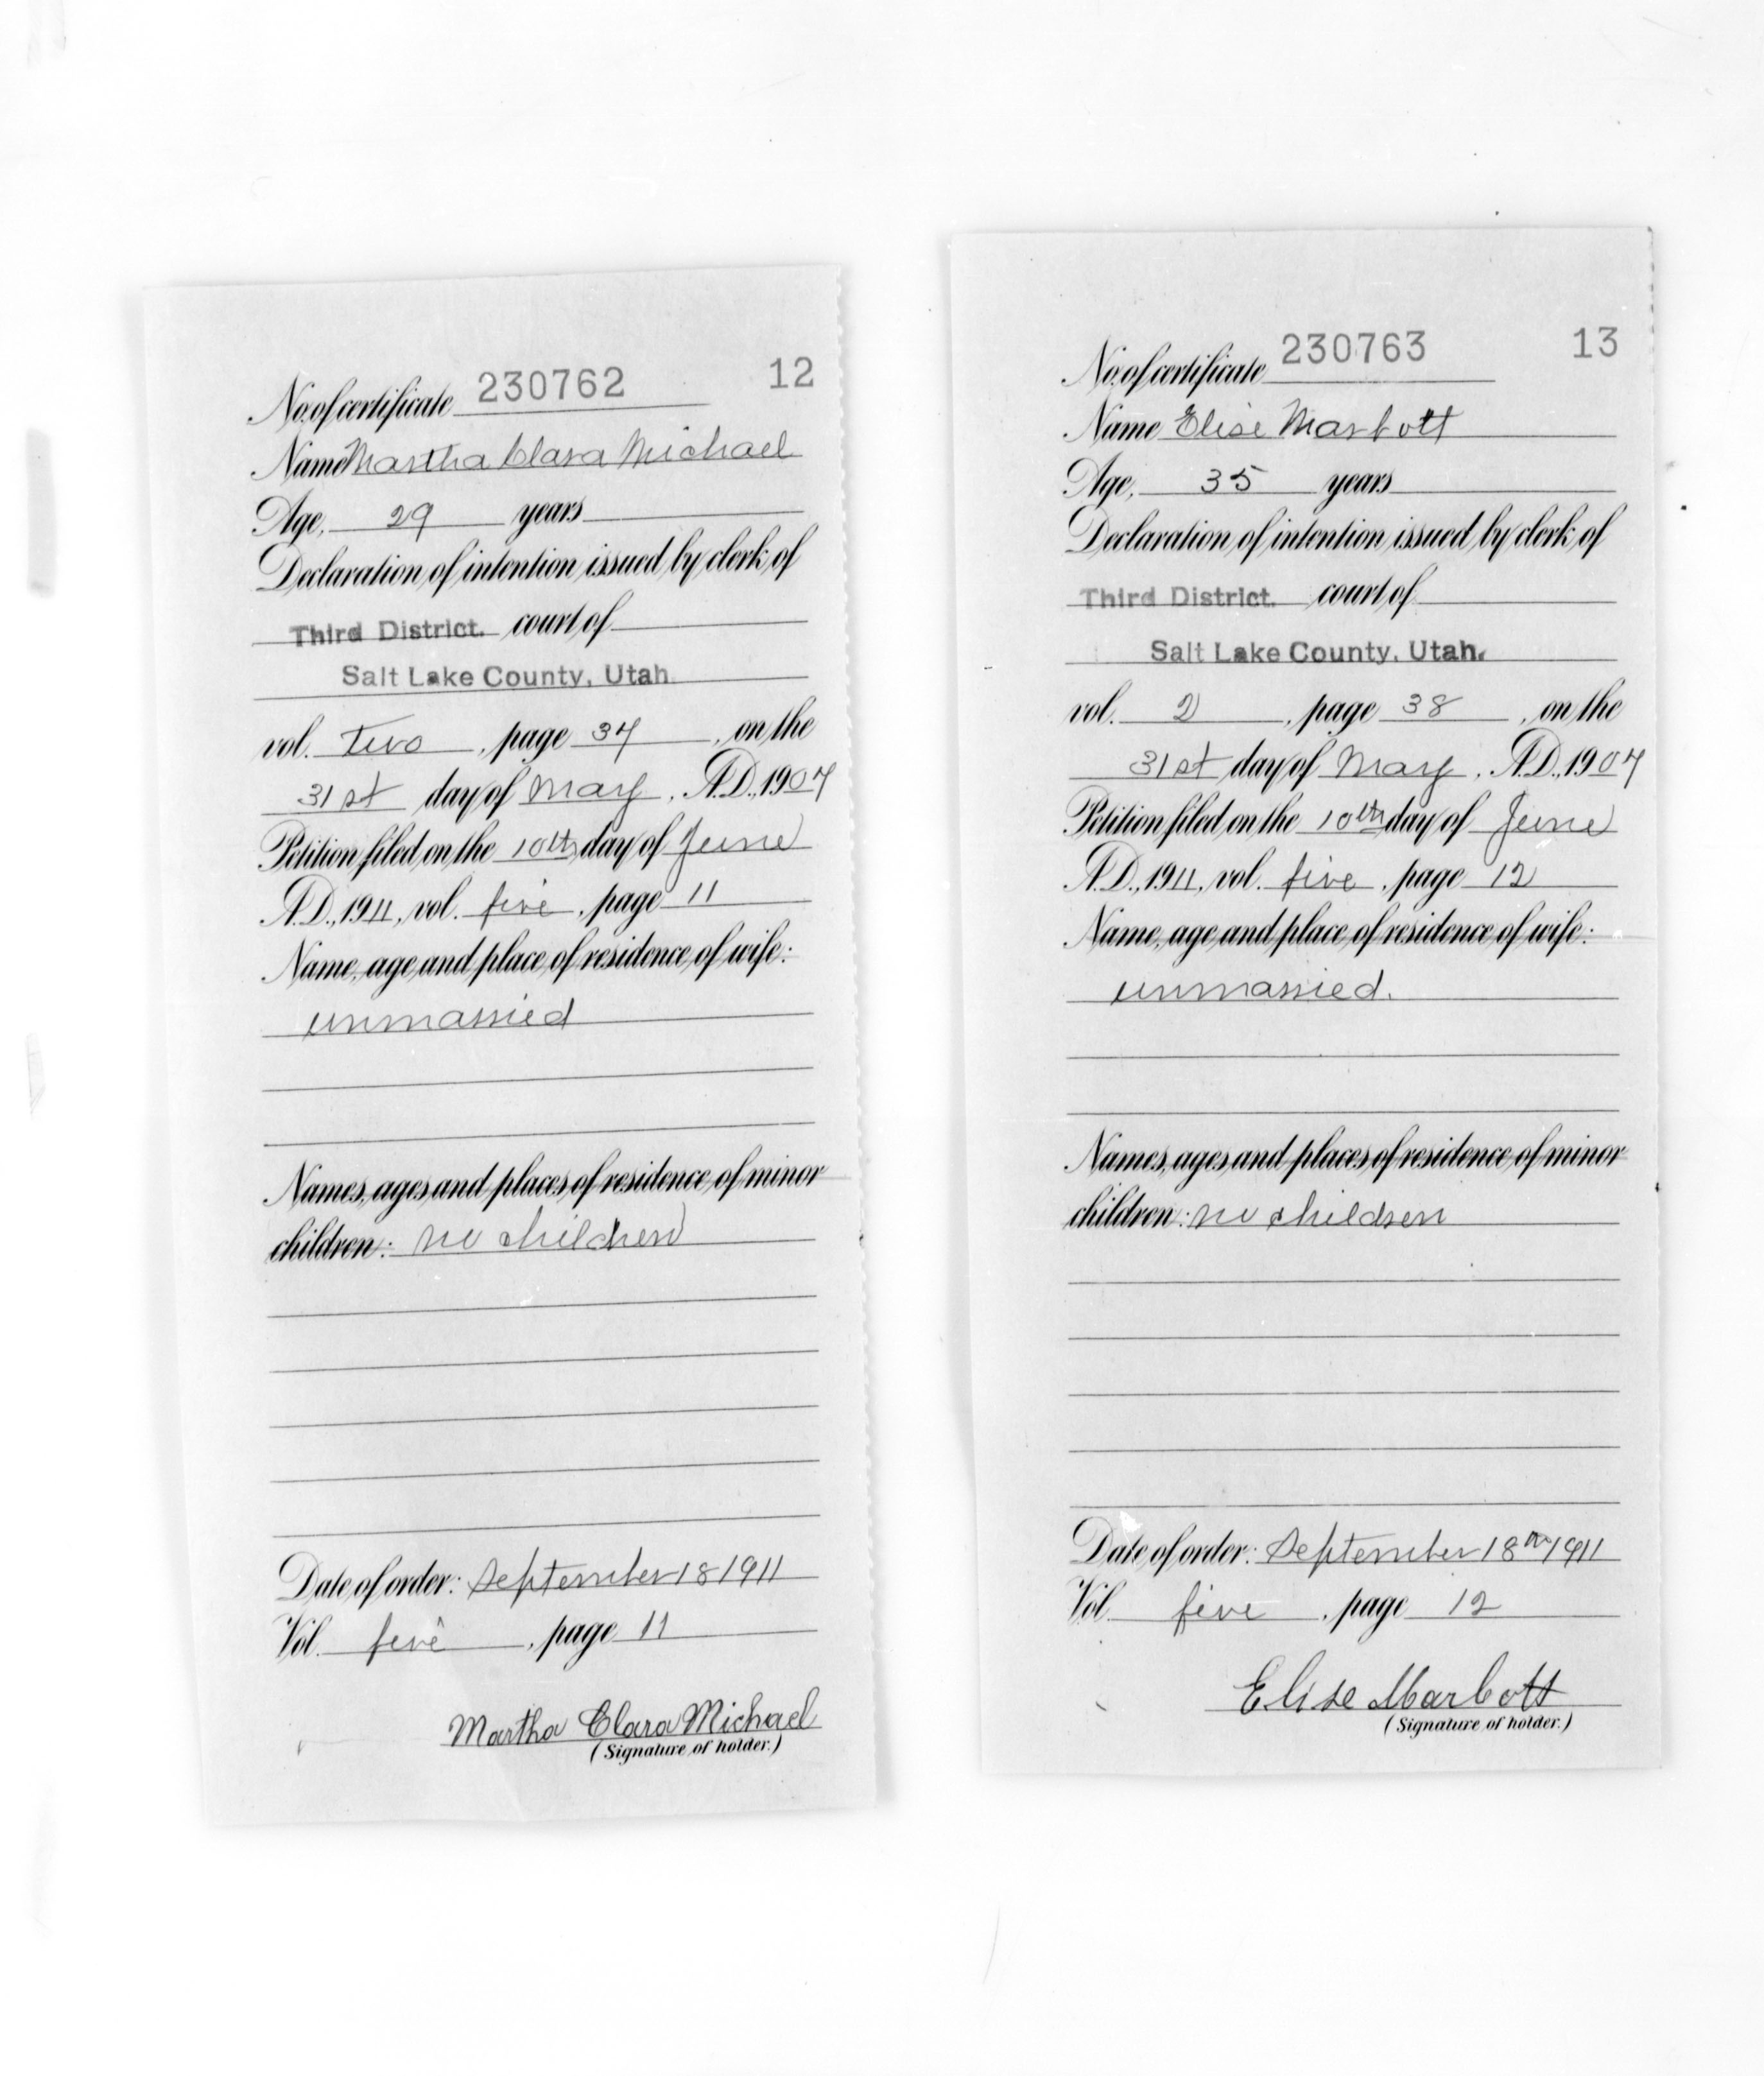 No. of certificate 230762 12
Name Martha Clara Michael
Age, 29 years
Declaration of intention issued by clerk of
Third District. court of
Salt Lake County, Utah.
vol. two, page 37, on the
31st day of May, A.D., 1907
Petition filed on the 10th day of June
A.D., 1911, vol. five, page 11
Name, age and place of residence of wife:
unmarried
Names, ages and places of residence of minor
children: no children
Date of order: September 18 1911
Vol. five, page 11
Martha Clara Michael
(Signature of holder.)
No. of certificate 230763 13
Name Elise Marbott
Age, 35 years
Declaration of intention issued by clerk of
Third District. court of
Salt Lake County, Utah.
vol. 2, page 38, on the
31st day of May, A.D., 1907
Petition filed on the 10th day of June
A.D., 1911, vol. five, page 12
Name, age and place of residence of wife:
unmarried.
Names, ages and places of residence of minor
children: no children
Date of order: September 18th 1911
Vol. five, page 12
Elise Marbott
(Signature of holder.)